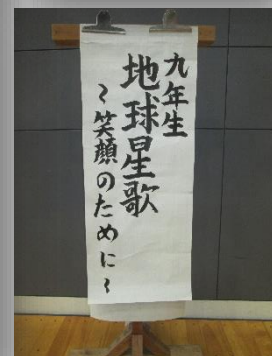 九年生
地球星歌
～笑顔のために～